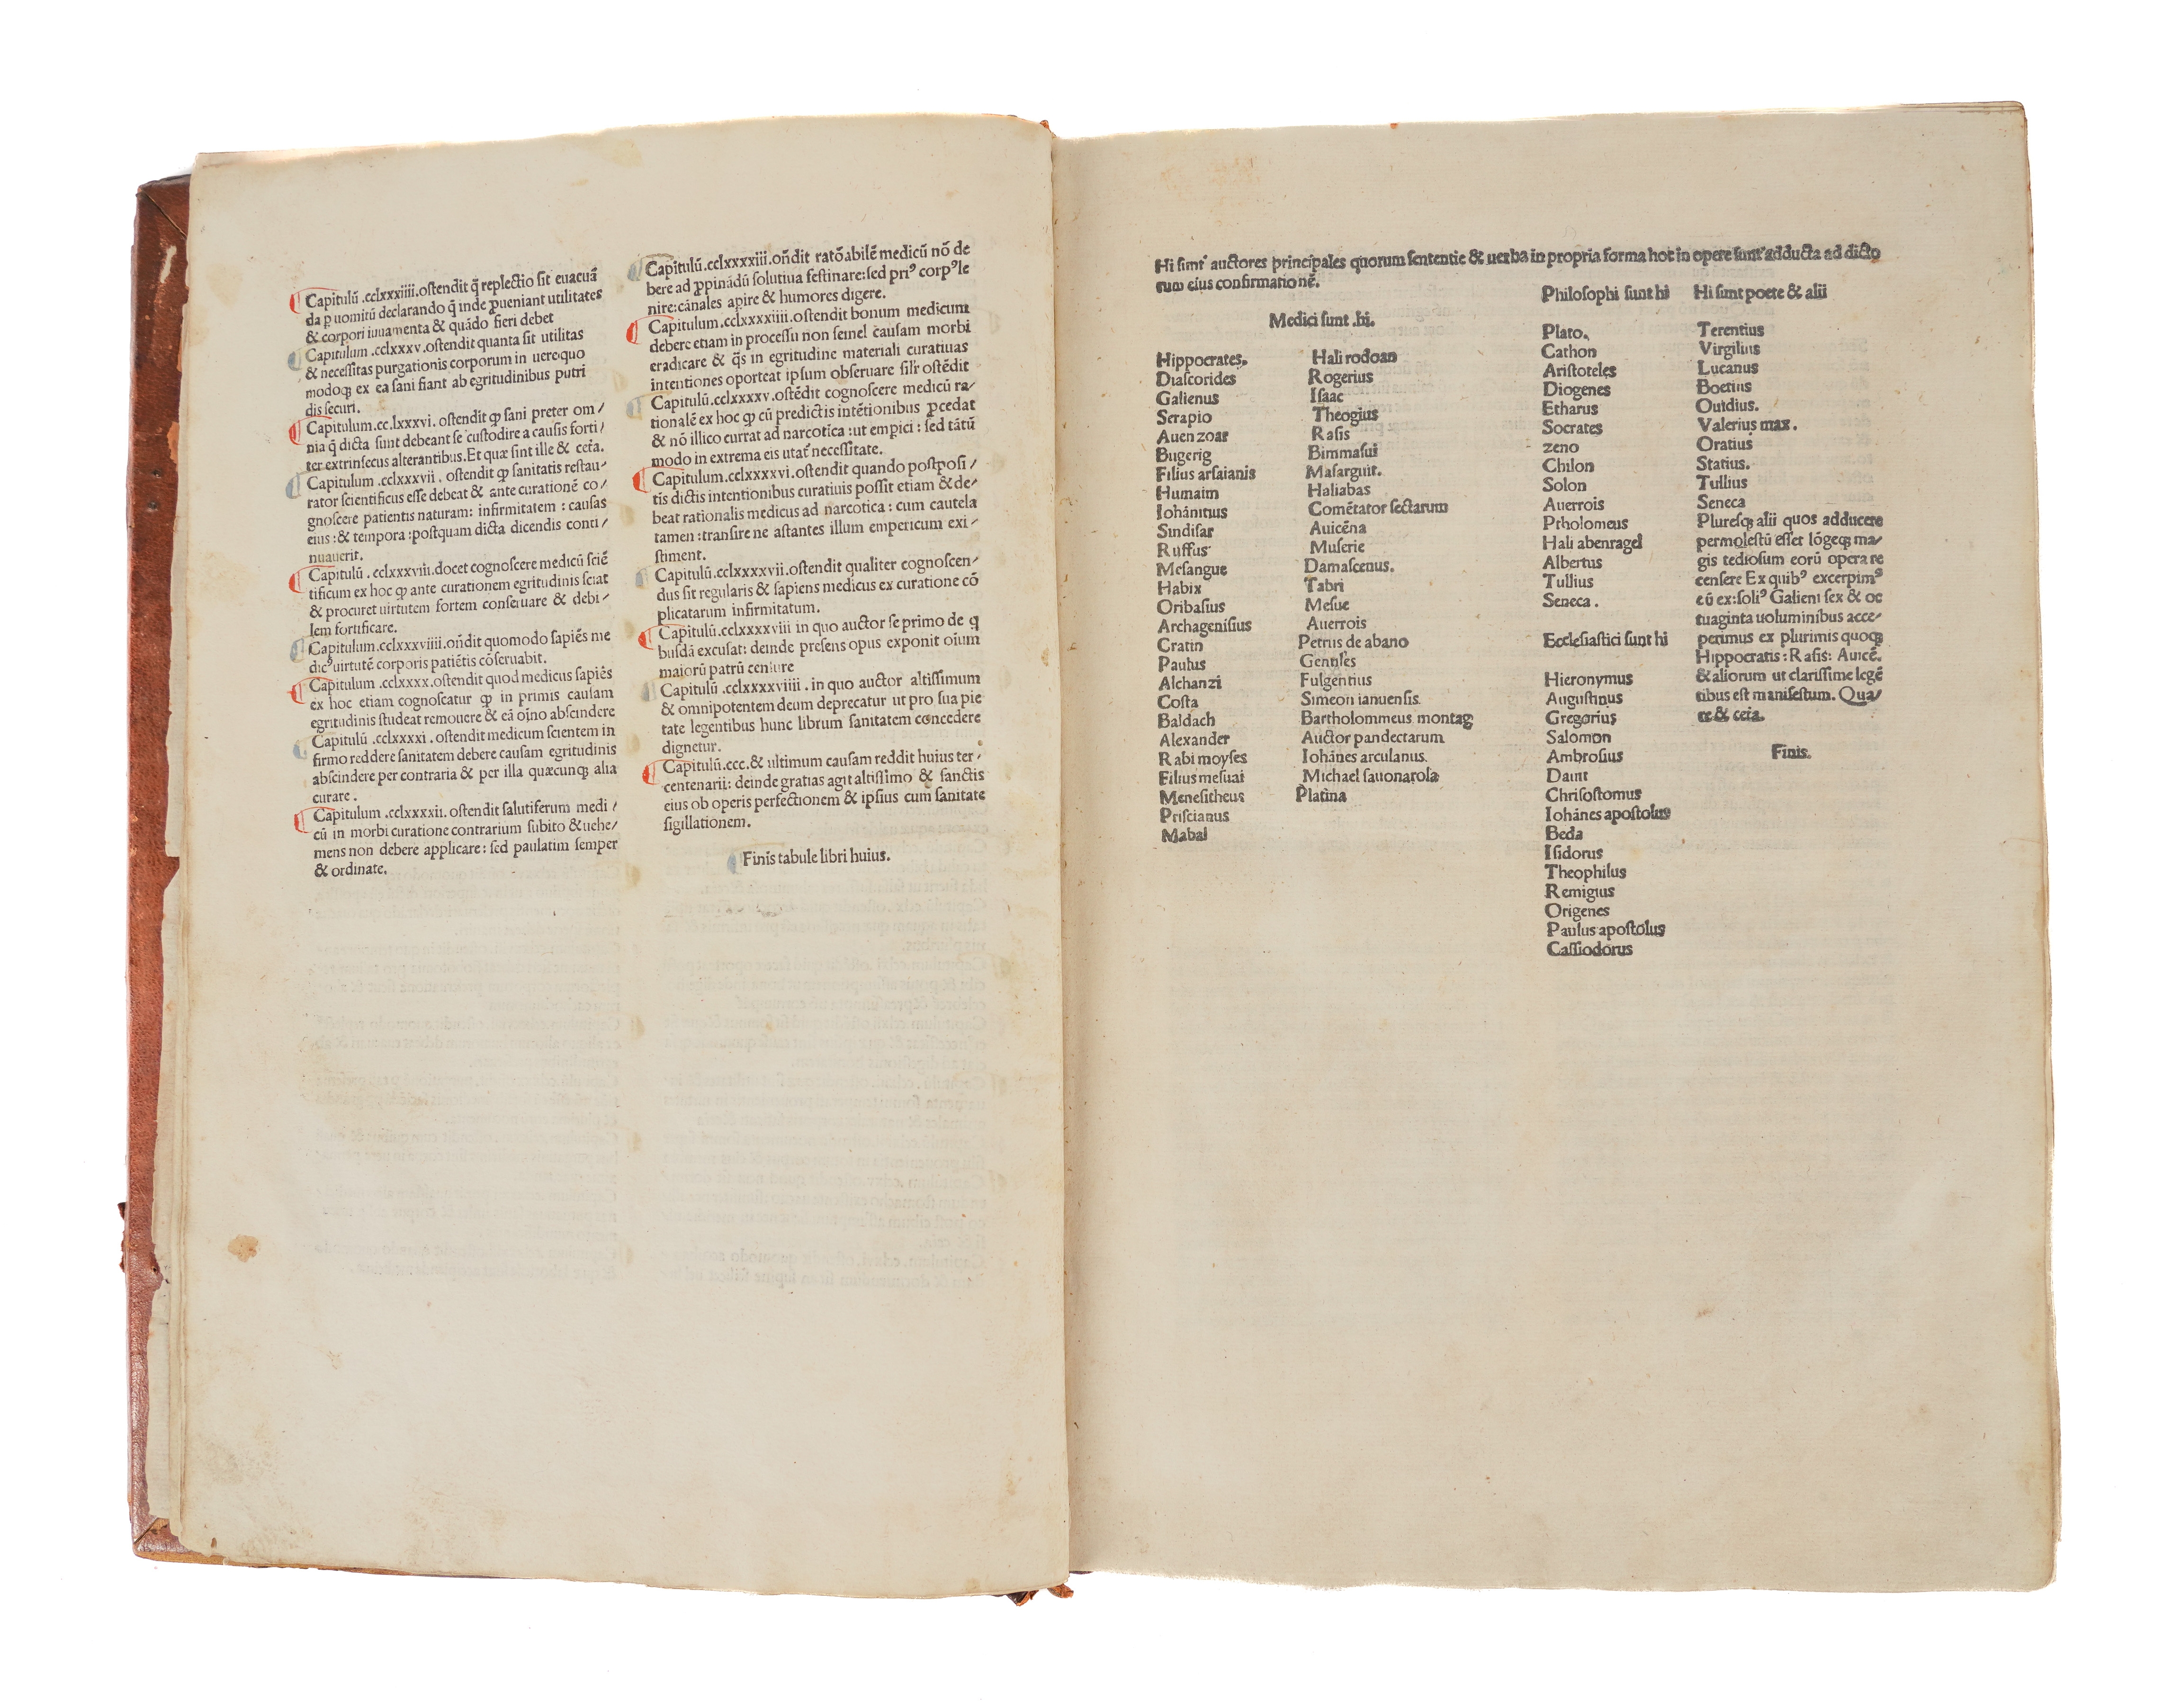 Capitulū .cclxxxiiii.ostendit q̄ repletio sit euacuā
da p uomitū declarando q̄ inde ꝓueniant utilitates
& corpori iuuamenta & quādo fieri debet
Capitulum .cclxxxv.ostendit quanta sit utilitas
& necessitas purgationis corporum in uere:quo
modoqȝ ex ea sani fiant ab egritudinibus putri
dis securi.
Capitulum.cc.lxxxvi. ostendit ꝙ sani preter om/
nia q̄ dicta sunt debeant se custodire a causis forti/
ter extrinsecus alterantibus.Et quæ sint ille & ceta.
Capitulum .cclxxxvii. ostendit ꝙ sanitatis restau/
rator scientificus esse debeat & ante curationē co/
gnoscere patientis naturam: infirmitatem : causas
eius :& tempora :postquam dicta dicendis conti/
nuauerit.
Capitulū . cclxxxviii.docet cognoscere medicū sciē
tificum ex hoc ꝙ ante curationem egritudinis sciat
& procuret uirtutem fortem conseruare & debi/
lem fortificare.
Capitulum.cclxxxviiii.oñdit quomodo sapiēs me
dicꝰ uirtutē corporis patiētis cōseruabit.
Capitulum .cclxxxx.ostendit quod medicus sapiēs
ex hoc etiam cognoscatur ꝙ in primis causam
egritudinis studeat remouere & eā oīno abscindere
Capitulū .cclxxxxi . ostendit medicum scientem in
firmo reddere sanitatem debere causam egritudinis
abscindere per contraria & per illa quæcunqȝ alia
curare .
Capitulum .cclxxxxii. ostendit salutiferum medi/
cū in morbi curatione contrarium subito & uehe/
mens non debere applicare : sed paulatim semper
& ordinate.
Capitulū.cclxxxxiii.oñdit ratōabilē medicū nō de
bere ad ꝓpinādū solutiua festinare:sed priꝰ corpꝰ le
nire:cānales apire & humores digere.
Capitulum.cclxxxxiiii.ostendit bonum medicum
debere etiam in processu non semel causam morbi
eradicare & q̄s in egritudine materiali curatiuas
intentiones oporteat ipsum obseruare silr̄ ostēdit
Capitulū.cclxxxxv.ostēdit cognoscere medicū ra/
tionalē ex hoc ꝙ cū predictis intētionibus ꝓcedat
& nō illico currat ad narcotica : ut empici : sed tātū
modo in extrema eis utat̄ necessitate.
Capitulum.cclxxxxvi.ostendit quando postposi/
tis dictis intentionibus curatiuis possit etiam & de/
beat rationalis medicus ad narcotica : cum cautela
tamen :transire ne astantes illum empericum exi/
stiment.
Capitulū.cclxxxxvii.ostendit qualiter cognoscen/
dus sit regularis & sapiens medicus ex curatione cō
plicatarum infirmitatum.
Capitulū.cclxxxxviii in quo auctor se primo de q
busdā excusat: deinde presens opus exponit oīum
maiorū patrū censure
Capitulū .cclxxxxviiii . in quo auctor altissimum
& omnipotentem deum deprecatur ut pro sua pie
tate legentibus hunc librum sanitatem concedere
dignetur.
Capitulū.ccc.& ultimum causam reddit huius ter/
centenarii: deinde gratias agit altissimo & sanctis
eius ob operis perfectionem & ipsius cum sanitate
sigillationem.
Finis tabule libri huius.
Hi sunt auctores principales quorum sententie & uerba in propria forma hoc in opere sunt adducta ad dicto
rum eius confirmationē.
Medici sunt .hi.
Hippocrates.
Diascorides
Galienus
Serapio
Auenzoar
Bugerig
Filius arsaianis
Humaim
Iohānitius
Sindisar
Ruffus
Mesangue
Habix
Oribasius
Archagenisius
Cratin
Paulus
Alchanzi
Costa
Baldach
Alexander
Rabi moyses
Filius mesuai
Menesitheus
Priscianus
Mabal
Hali rodoan
Rogerius
Isaac
Theogius
Rasis
Bimmasui
Masarguit.
Haliabas
Comētator sectarum
Auicēna
Muserie
Damascenus.
Tabri
Mesue
Auerrois
Petrus de abano
Gentiles
Fulgentius
Simeon ianuensis.
Bartholommeus montag
Auctor pandectarum
Iohānes arculanus.
Michael sauonarola
Platina
Philosophi sunt hi
Plato.
Cathon
Aristoteles
Diogenes
Etharus
Socrates
zeno
Chilon
Solon
Auerrois
Ptholomeus
Hali abenragel
Albertus
Tullius
Seneca .
Ecclesiastici sunt hi
Hieronymus
Augustinus
Gregorius
Salomon
Ambrosius
Dauit
Chrisostomus
Iohānes apostolus
Beda
Isidorus
Theophilus
Remigius
Origenes
Paulus apostolus
Cassiodorus
Hi sunt poete & alii
Terentius
Virgilius
Lucanus
Boetius
Ouidius.
Valerius max.
Oratius
Statius.
Tullius
Seneca
Pluresqȝ alii quos adducere
permolestū esset lōgeqȝ ma/
gis tediosum eorū opera re
censere Ex quibꝰ excerpimꝰ
cū ex:soliꝰ Galieni sex & oc
tuaginta uoluminibus acce/
perimus ex plurimis quoqȝ
Hippocratis : Rasis: Auicē.
& aliorum ut clarissime legē
tibus est manifestum. Qua/
re & ceta.
Finis.